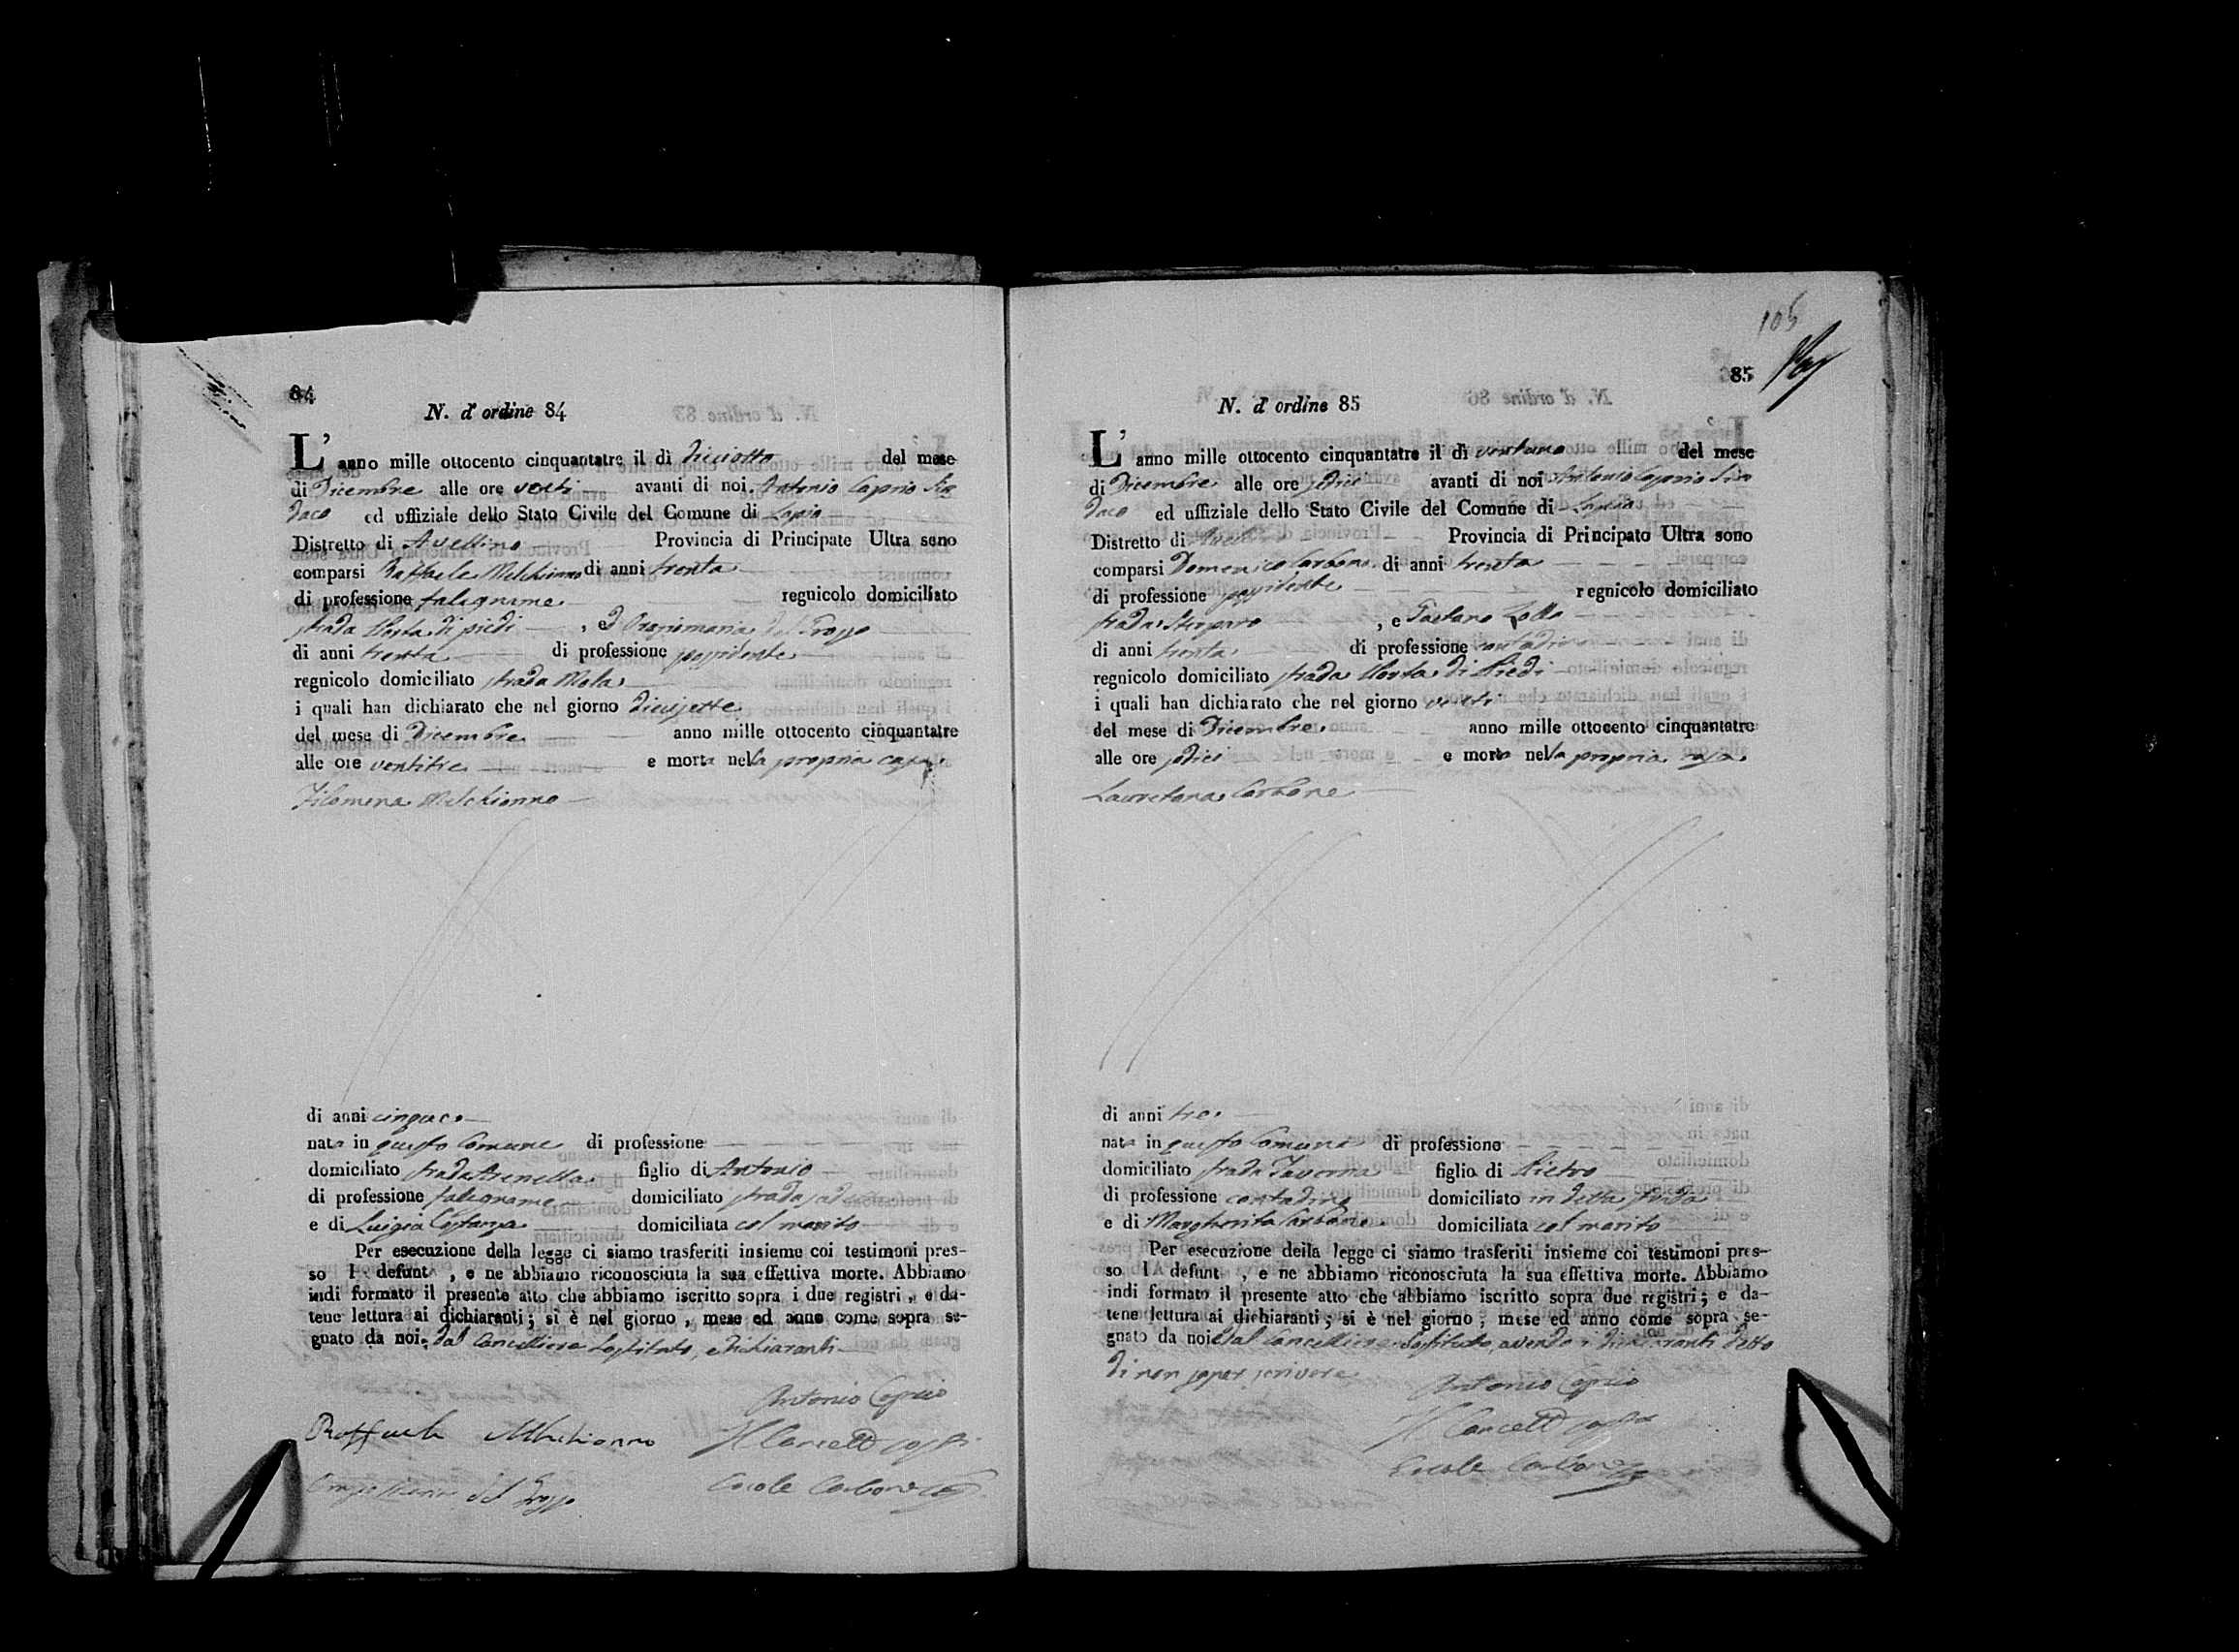 84
N. d' ordine 84
L' anno mille ottocento cinquantatre il dì diciotto del mese
di Dicembre alle ore venti avanti di noi Antonio Caprio Sin
daco ed uffiziale dello Stato Civile del Comune di Lapio
Distretto di Avellino Provincia di Principato Ultra sono
comparsi Raffaele Melchionno di anni trenta
di professione falegname regnicolo domiciliato
strada Porta di piedi , e d Oraziomaria del Grosso
di anni trenta di professione possidente
regnicolo domiciliato strada Mola
i quali han dichiarato che nel giorno diciassette
del mese di Dicembre anno mille ottocento cinquantatre
alle ore ventitre e morta nella propria casa
Filomena Melchionno
di anni cinque
nata in questo Comune di professione
domiciliato strada Arenella figlio di Antonio
di professione falegname domiciliato strada
e di Luigia Costanza domiciliata col marito
Per esecuzione della legge ci siamo trasferiti insieme coi testimoni pres-
so l defunt , e ne abbiamo riconosciuta la sua effettiva morte. Abbiamo
indi formato il presente atto che abbiamo iscritto sopra i due registri, e da-
tene lettura ai dichiaranti; si è nel giorno , mese ed anno come sopra se-
gnato da noi, dal Cancelliere Sostituto, e dichiaranti
Antonio Caprio
Raffaele Melchionno Il Cancell sosti
Orazio Maria del Grosso Ercole Carbone
105
85
N. d' ordine 85
L' anno mille ottocento cinquantatre il dì ventuno del mese
di Dicembre alle ore sedici avanti di noi Antonio Caprio Sin
daco ed uffiziale dello Stato Civile del Comune di Lapio
Distretto di Avellino Provincia di Principato Ultra sono
comparsi Domenico Carbone di anni trenta
di professione possidente regnicolo domiciliato
strada , e Gaetano Zollo
di anni trenta di professione contadino
regnicolo domiciliato strada Porta di Piedi
i quali han dichiarato che nel giorno venti
del mese di Dicembre anno mille ottocento cinquantatre
alle ore sedici e morta nella propria casa
Lauretana Carbone
di anni tre
nata in questo Comune di professione
domiciliato strada Taverna figlio di Pietro
di professione contadino domiciliato in detta strada
e di Margherita Carbone domiciliata col marito
Per esecuzione della legge ci siamo trasferiti insieme coi testimoni pres-
so l a defunt , e ne abbiamo riconosciuta la sua effettiva morte. Abbiamo
indi formato il presente atto che abbiamo iscritto sopra due registri; e da-
tene lettura ai dichiaranti; si è nel giorno , mese ed anno come sopra se-
gnato da noi e dal Cancelliere Sostituto, avendo i dichiaranti detto
di non saper scrivere
Antonio Caprio
Il Cancell sosti
Ercole Carbone